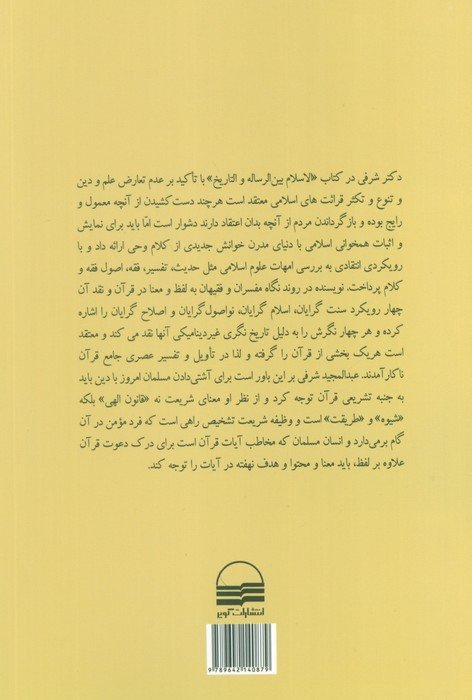 دکتر شرفی در کتاب «الاسلام بین‌الرساله و التاریخ» با تأکید بر عدم تعارض علم و دین
و تنوع و تکثر قرائت های اسلامی معتقد است هرچند دست‌کشیدن از آنچه معمول و
رایج بوده و بازگرداندن مردم از آنچه بدان اعتقاد دارند دشوار است امّا باید برای نمایش
و اثبات همخوانی اسلامی با دنیای مدرن خوانش جدیدی از کلام وحی ارائه داد و با
رویکردی انتقادی به بررسی امهات علوم اسلامی مثل حدیث، تفسیر، فقه، اصول فقه و
کلام پرداخت. نویسنده در روند نگاه مفسران و فقیهان به لفظ و معنا در قرآن و نقد آن
چهار رویکرد سنت گرایان، اسلام گرایان، نواصول‌گرایان و اصلاح گرایان را اشاره
کرده و هر چهار نگرش را به دلیل تاریخ نگری غیردینامیکی آنها نقد می کند و معتقد
است هریک بخشی از قرآن را گرفته و لذا در تأویل و تفسیر عصری جامع قرآن
ناکارآمدند. عبدالمجید شرفی بر این باور است برای آشتی‌دادن مسلمان امروز با دین باید
به جنبه تشریعی قرآن توجه کرد و از نظر او معنای شریعت نه «قانون الهی» بلکه
«شیوه» و «طریقت» است و وظیفه شریعت تشخیص راهی است که فرد مؤمن در آن
گام برمی‌دارد و انسان مسلمان که مخاطب آیات قرآن است برای درک دعوت قرآن
علاوه بر لفظ، باید معنا و محتوا و هدف نهفته در آیات را توجه کند.
انتشارات کویر
9 789642 140879